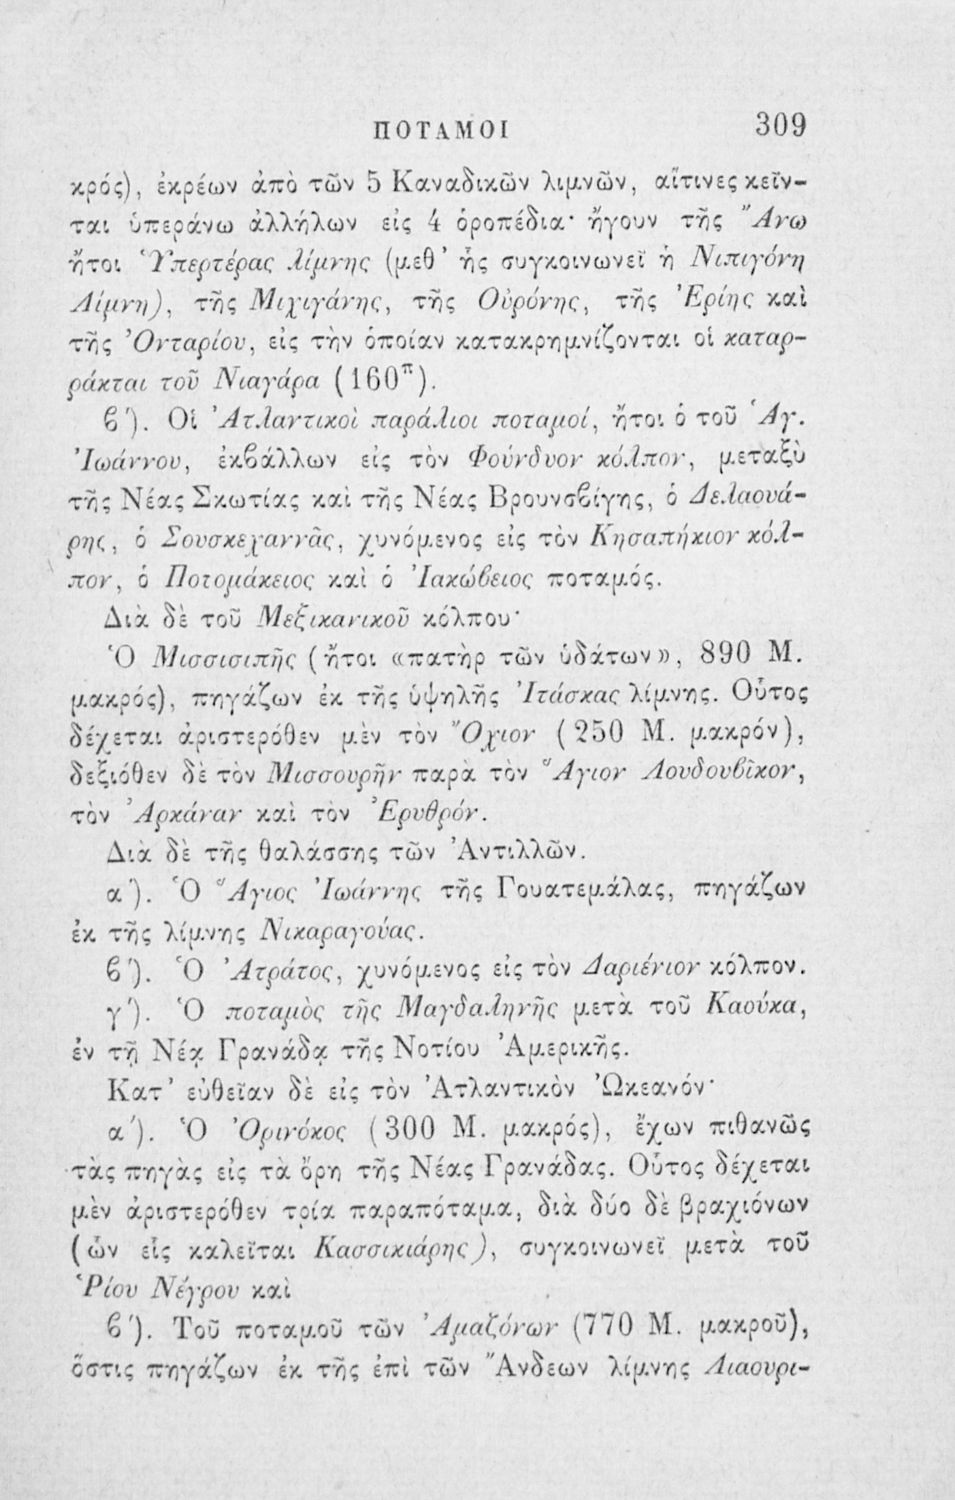 ΠΟΤΑΜΟΙ 309
κρός), ἐκρέων ἀπὸ τῶν 5 Καναδικῶν λιμνῶν, αἵτινες κεῖν-
ται ὑπεράνω ἀλλήλων εἰς 4 ὀροπέδια· ἤγουν τῆς Ἄνω
ἤτοι Ὑπερτέρας λίμνης (μεθ’ ἧς συγκοινωνεῖ ἡ Νιπιγόνη
Λίμνη), τῆς Μιχιγάνης, τῆς Οὑρόνης, τῆς Ἐρίης καὶ
τῆς Ὀνταρίου, εἰς τὴν ὁποίαν κατακρημνίζονται οἱ καταρ-
ράκται τοῦ Νιαγάρα (160π).
ϐ'). Οἱ Ἀτλαντικοὶ παράλιοι ποταμοί, ἤτοι ὁ τοῦ Ἁγ.
Ἰωάννου, ἐκϐάλλων εἰς τὸν Φούνδυον κόλπον, μεταξὺ
τῆς Νέας Σκωτίας καὶ τῆς Νέας Βρουνσϐίγης, ὁ Δελαουά-
ρης, ὁ Σουσκεχαννᾶς, χυνόμενος εἰς τὸν Κησαπήκιον κόλ-
πον, ὁ Ποτομάκειος καὶ ὁ Ἰακώϐειος ποταμός.
Διὰ δὲ τοῦ Μεξικανικοῦ κόλπου·
Ὁ Μισσισιπῆς (ἤτοι «πατὴρ τῶν ὑδάτων», 890 Μ.
μακρός), πηγάζων ἐκ τῆς ὑψηλῆς Ἰτάσκας λίμνης. Οὗτος
δέχεται ἀριστερόθεν μὲν τὸν Ὄχιον (250 Μ. μακρόν),
δεξιόθεν δὲ τὸν Μισσουρῆν παρὰ τὸν Ἅγιον Λουδουϐῖκον,
τὸν Ἀρκάναν καὶ τὸν Ἐρυθρόν.
Διὰ δὲ τῆς θαλάσσης τῶν Ἀντιλλῶν.
α'). Ὁ Ἅγιος Ἰωάννης τῆς Γουατεμάλας, πηγάζων
ἐκ τῆς λίμνης Νικαραγούας.
ϐ'). Ὁ Ἀτράτος, χυνόμενος εἰς τὸν Δαριένιον κόλπον.
γ'). Ὁ ποταμὸς τῆς Μαγδαληνῆς μετὰ τοῦ Καούκα,
ἐν τῇ Νέᾳ Γρανάδᾳ τῆς Νοτίου Ἀμερικῆς.
Κατ’ εὐθεῖαν δὲ εἰς τὸν Ἀτλαντικὸν Ὠκεανόν·
α'). Ὁ Ὀρινόκος (300 Μ. μακρός), ἔχων πιθανῶς
τὰς πηγὰς εἰς τὰ ὄρη τῆς Νέας Γρανάδας. Οὗτος δέχεται
μὲν ἀριστερόθεν τρία παραπόταμα, διὰ δύο δὲ βραχιόνων
(ὧν εἷς καλεῖται Κασσικιάρης), συγκοινωνεῖ μετὰ τοῦ
Ῥίου Νέγρου καὶ
ϐ'). Τοῦ ποταμοῦ τῶν Ἀμαζόνων (770 Μ. μακροῦ),
ὅστις πηγάζων ἐκ τῆς ἐπὶ τῶν Ἄνδεων λίμνης Λιαουρι-